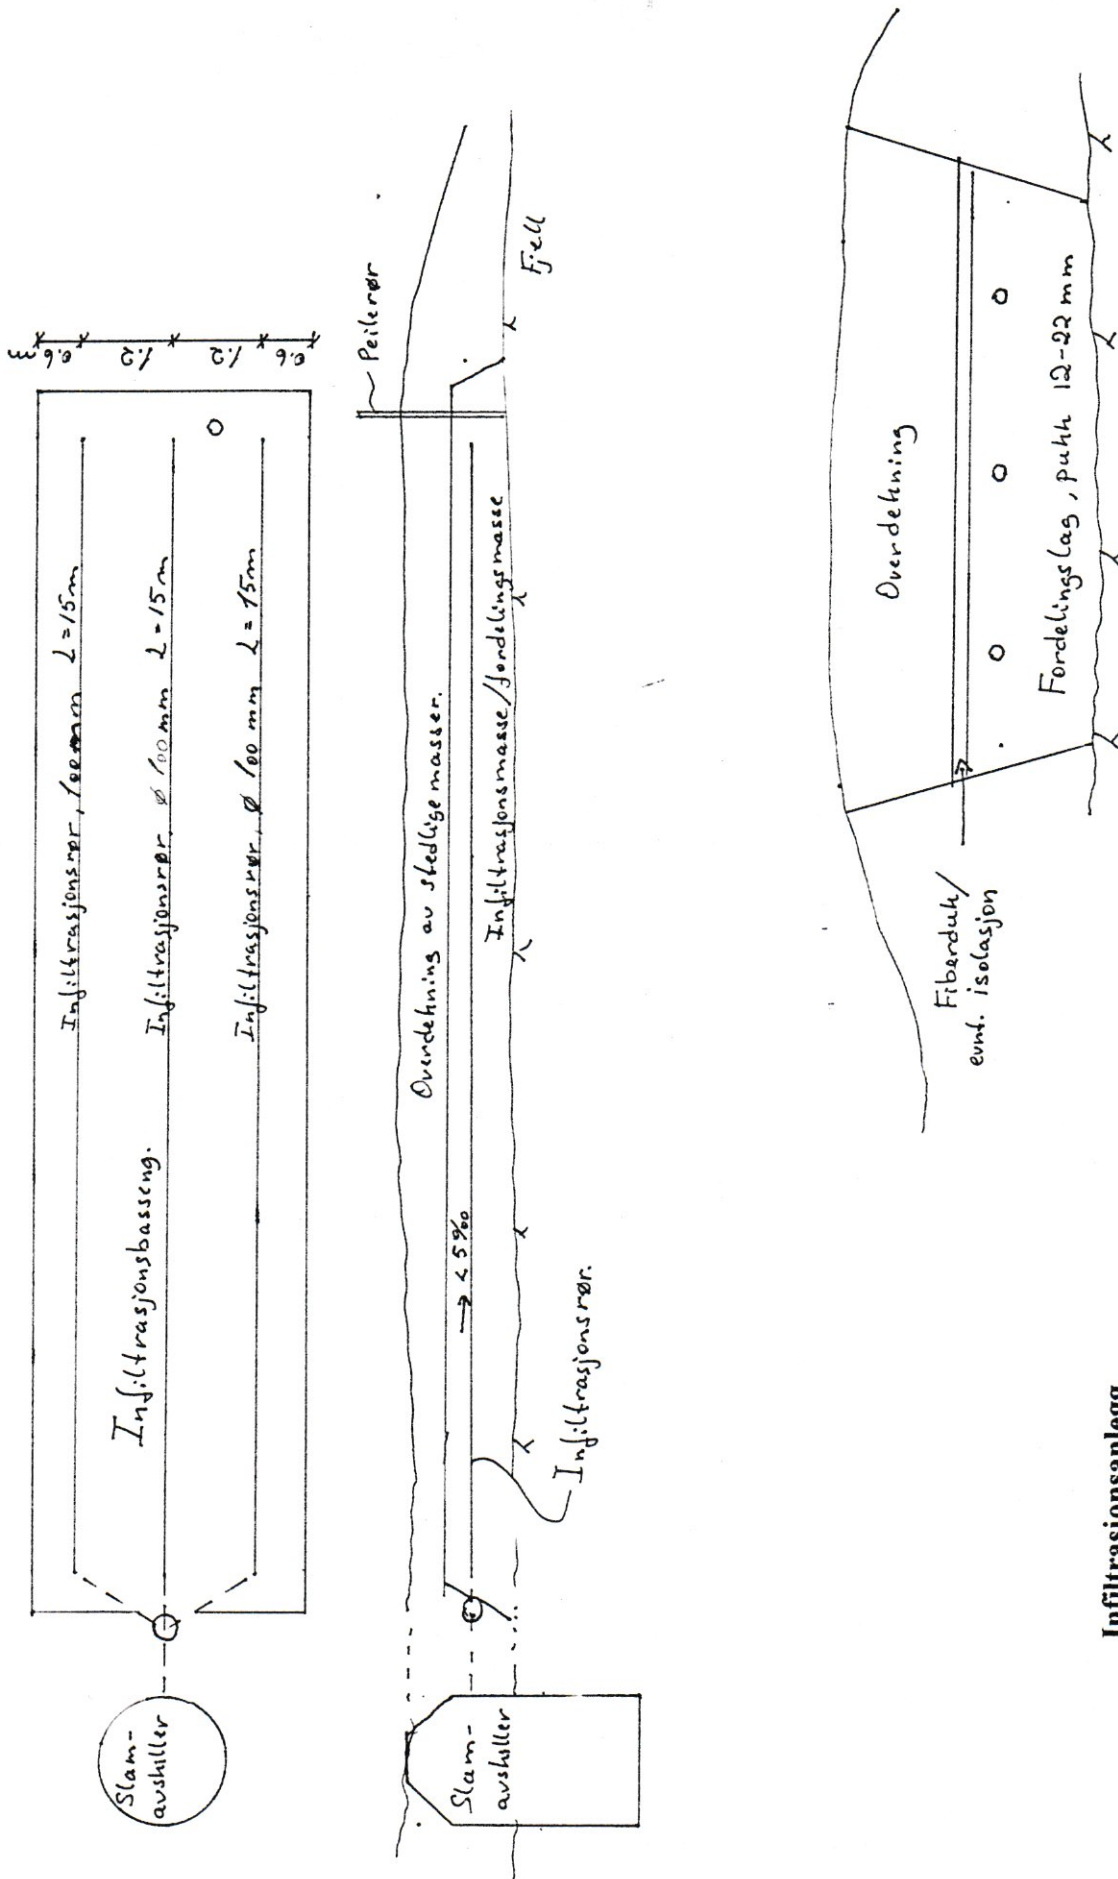 Infiltrasjonsrør, 100mm L=15m
Infiltrasjonsrør, ø 100 mm L=15m
Infiltrasjonsrør, ø 100 mm L=15m
Infiltrasjonsbasseng.
Slam-
avskiller
0.6
1.2
1.2
0.6
m
Peilerør
Overdekning av stedlige masser.
Infiltrasjonsmasse/fordelingsmasse
Fjell
< 5‰
Infiltrasjonsrør.
Slam-
avskiller
Overdekning
Fordelingslag, pukk 12-22 mm
Fiberduk/
evnt. isolasjon
Infiltrasjonsanlegg